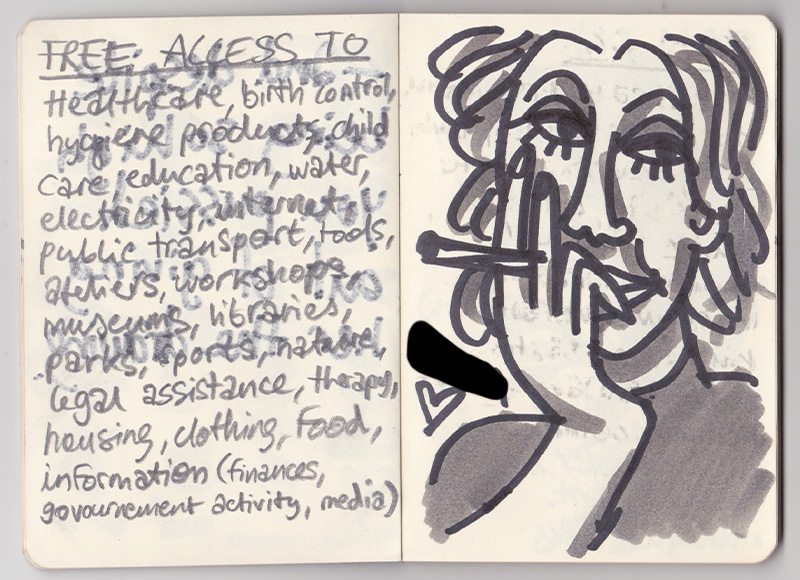 FREE ACCESS TO
Healthcare, birth control,
hygiene products, child
care, education, water,
electricity, internet,
public transport, tools,
ateliers, workshops,
museums, libraries,
parks, sports, nature,
legal assistance, therapy,
housing, clothing, food,
information (finances,
govournement activity, media)